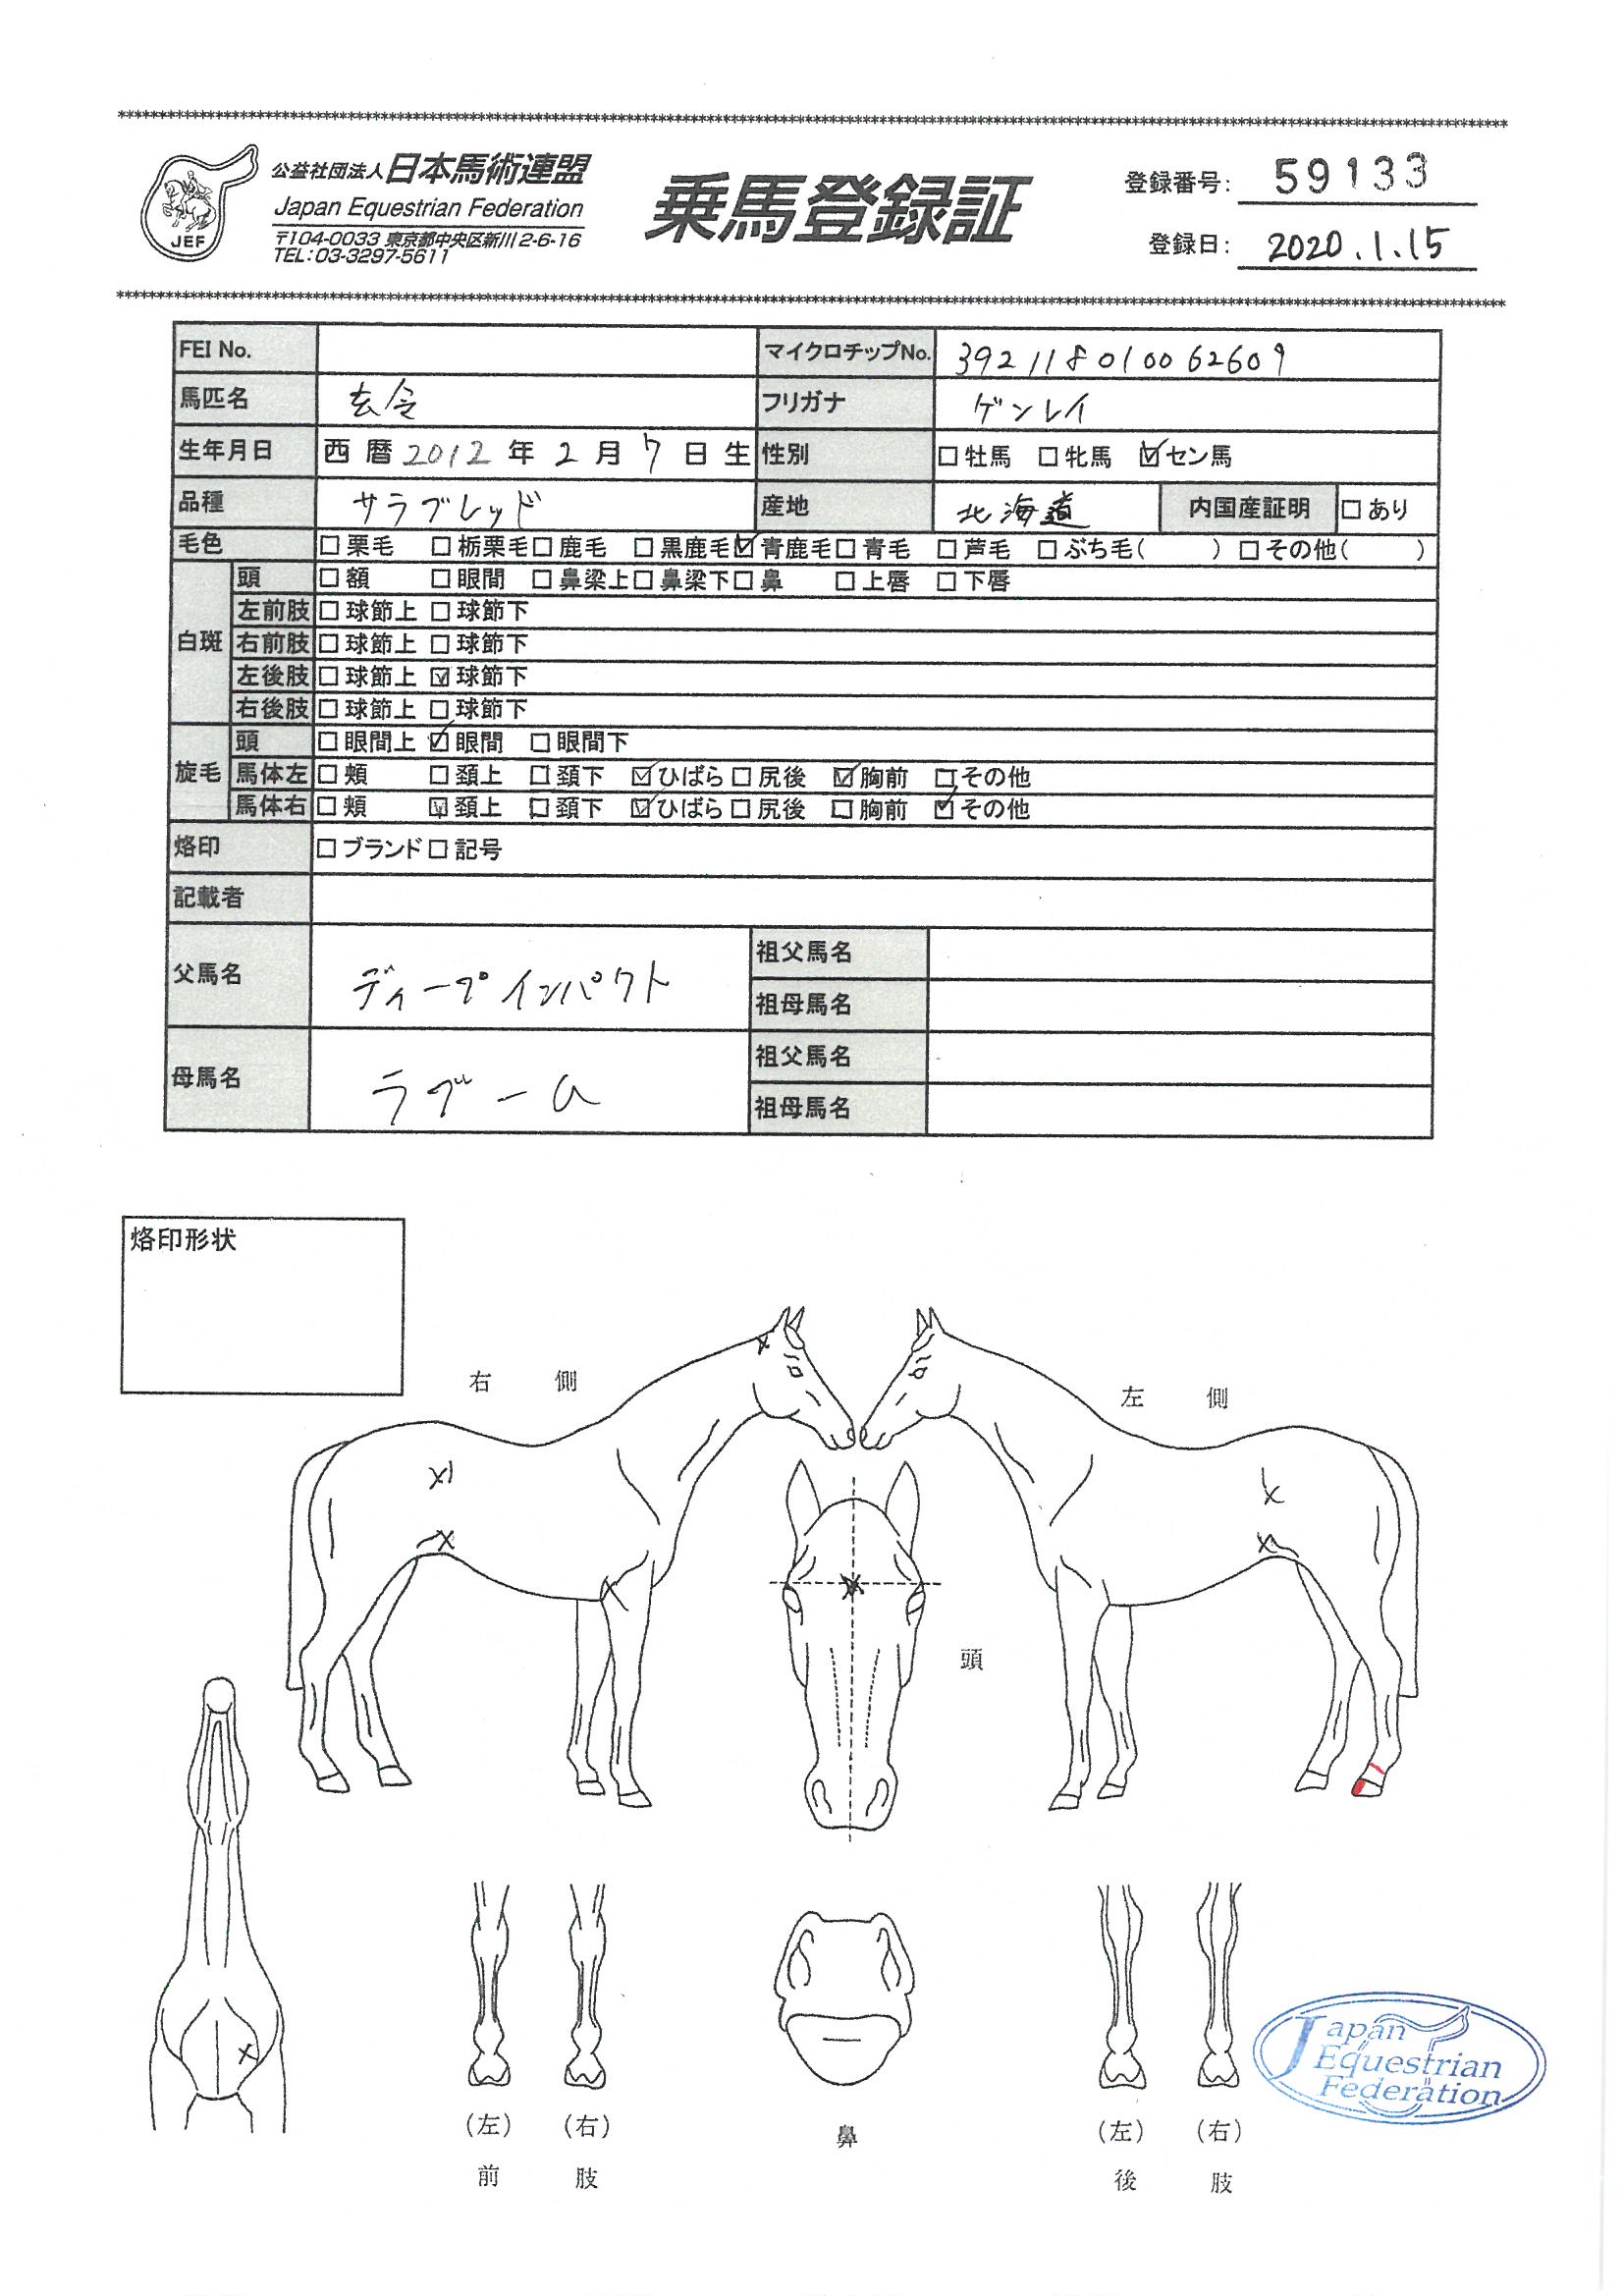 公益社団法人日本馬術連盟
Japan Equestrian Federation
〒104-0033 東京都中央区新川2-6-16
TEL:03-3297-5611
JEF
乗馬登録証
登録番号: 59133
登録日: 2020.1.15
FEI No. マイクロチップNo. 392118010062609
馬匹名 玄令 フリガナ ゲンレイ
生年月日 西暦2012年2月7日生 性別 □牡馬 □牝馬 ☑セン馬
品種 サラブレッド 産地 北海道 内国産証明 □あり
毛色 □栗毛 □栃栗毛 □鹿毛 □黒鹿毛 ☑青鹿毛 □青毛 □芦毛 □ぶち毛( ) □その他( )
白斑 頭 □額 □眼間 □鼻梁上 □鼻梁下 □鼻 □上唇 □下唇
左前肢 □球節上 □球節下
右前肢 □球節上 □球節下
左後肢 □球節上 ☑球節下
右後肢 □球節上 □球節下
旋毛 頭 □眼間上 ☑眼間 □眼間下
馬体左 □頬 □頚上 □頚下 ☑ひばら □尻後 ☑胸前 □その他
馬体右 □頬 ☑頚上 □頚下 ☑ひばら □尻後 □胸前 ☑その他
烙印 □ブランド □記号
記載者
父馬名 ディープインパクト 祖父馬名
祖母馬名
母馬名 ラヴーム 祖父馬名
祖母馬名
烙印形状
右側
左側
頭
(左) (右)
前肢
鼻
(左) (右)
後肢
Japan
Equestrian
Federation